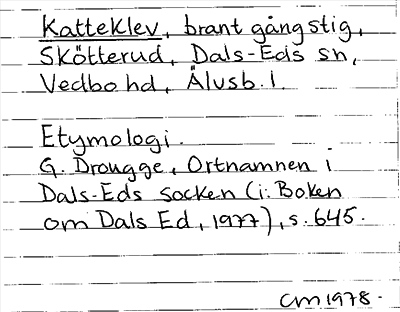 Katteklev, brant gångstig,
Skötterud, Dals-Eds sn,
Vedbo hd, Älvsb. l.
Etymologi.
G. Drougge, Ortnamnen i
Dals-Eds socken (i: Boken
om Dals Ed, 1977), s. 645.
CM 1978.